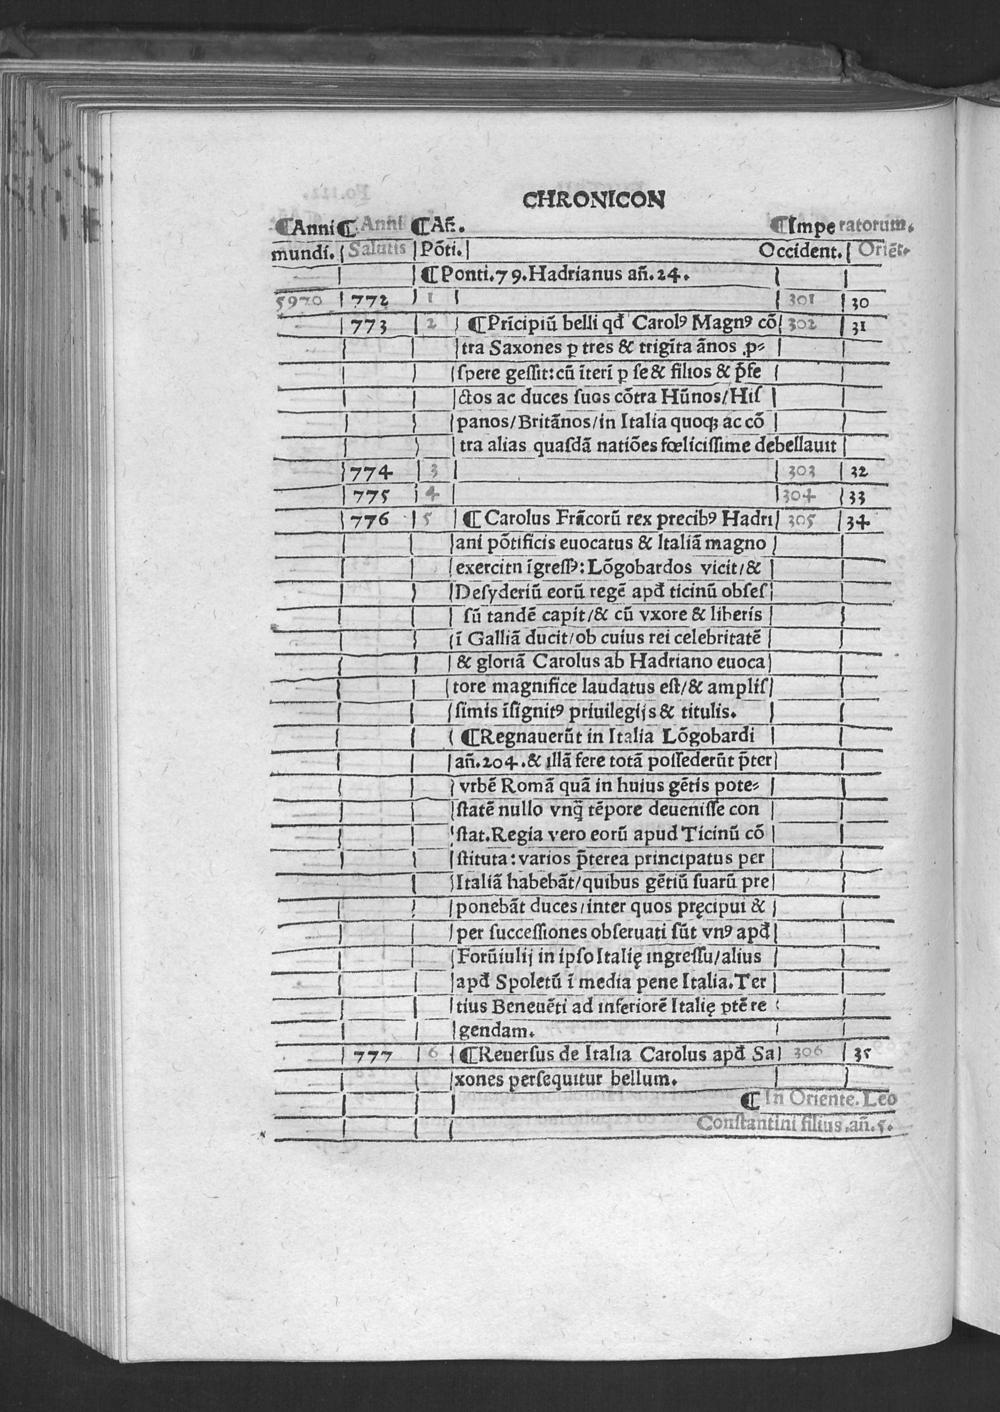 CHRONICON
¶Anni ¶Anni ¶Añ. ¶Imperatorum.
mundi. Salutis Põti. Occident. Oriẽt.
¶Ponti.79.Hadrianus añ.24.
5970 772 1 301 30
773 2 ¶Prĩcipiũ belli qđ Carolꝰ Magnꝰ cõ 302 31
tra Saxones p tres & trigĩta ãnos .p⸗
ſpere geſſit:cũ ĩterĩ p ſe & filios & p̃fe
ctos ac duces ſuos cõtra Hũnos/Hiſ
panos/Britãnos/in Italia quoqꝫ ac cõ
tra alias quaſdã natiões fœliciſſime debellauit
774 3 303 32
775 4 304 33
776 5 ¶Carolus Frãcorũ rex precibꝰ Hadri 305 34
ani põtificis euocatus & Italiã magno
exercitu ĩgreſſꝰ: Lõgobardos vicit/&
Deſyderiũ eorũ regẽ apđ ticinũ obſeſ
ſũ tandẽ capit/& cũ vxore & liberis
ĩ Galliã ducit/ob cuius rei celebritatẽ
& gloriã Carolus ab Hadriano euoca
tore magnifice laudatus eſt/& ampliſ
ſimis ĩſignitꝰ priuilegijs & titulis.
¶Regnauerũt in Italia Lõgobardi
añ.204.& illã fere totã poſſederũt p̃ter
vrbẽ Romã quã in huius gẽtis pote⸗
ſtatẽ nullo vnq̃ tẽpore deueniſſe con
ſtat.Regia vero eorũ apud Ticinũ cõ
ſtituta: varios p̃terea principatus per
Italiã habebãt/quibus gẽtiũ ſuarũ pre
ponebãt duces/inter quos pręcipui &
per ſucceſſiones obſeruati ſũt vnꝰ apđ
Forũiulij in ipſo Italię ingreſſu/alius
apđ Spoletũ ĩ media pene Italia.Ter
tius Beneuẽti ad inferiorẽ Italię ptẽ re
gendam.
777 6 ¶Reuerſus de Italia Carolus apđ Sa 306 35
xones perſequitur bellum.
¶In Oriente. Leo
Conſtantini filius.añ.5.